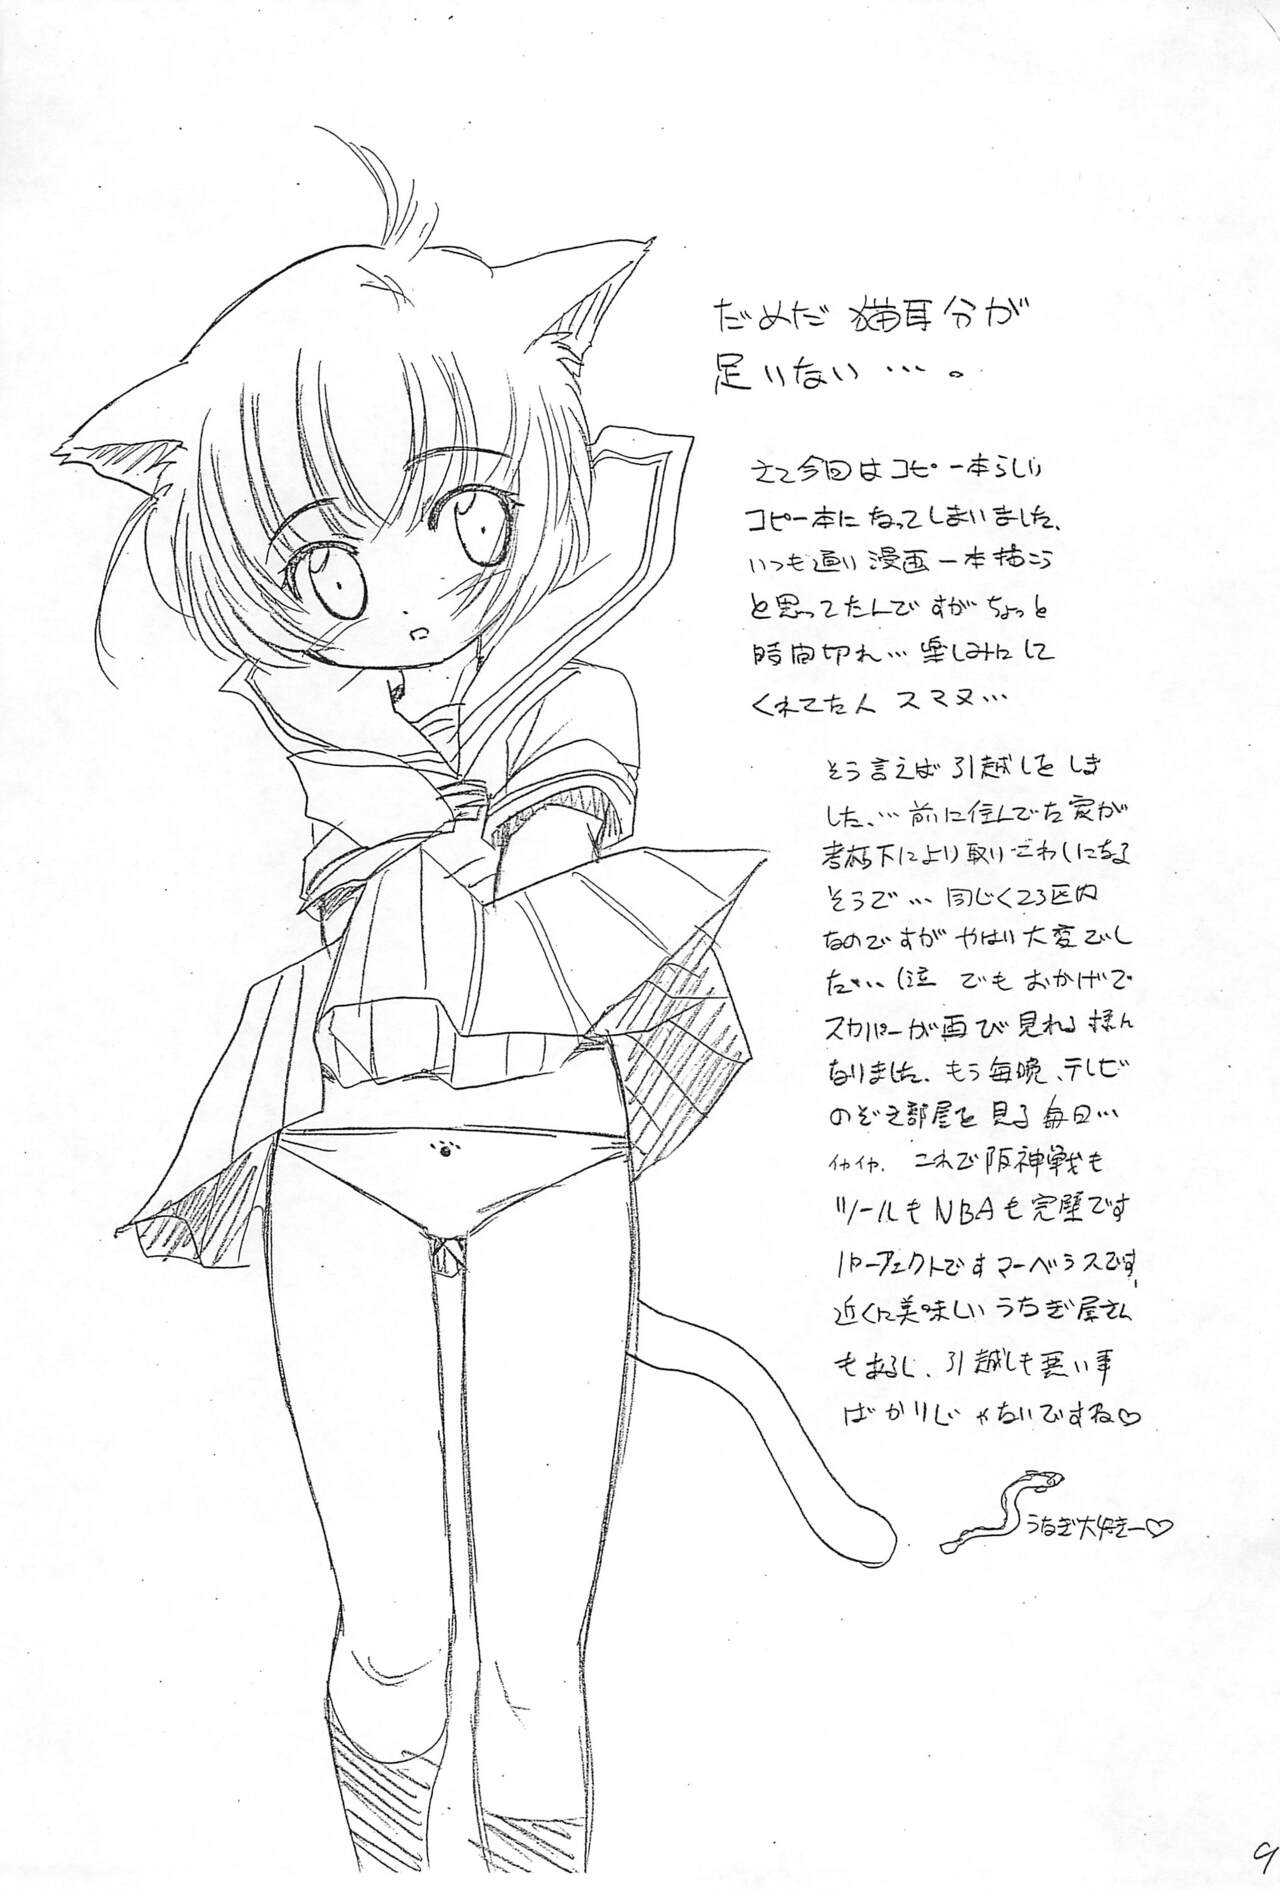 だめだ 猫耳分が
足りない…。
さて今回はコピー本らしい
コピー本になってしまいました、
いつも通り漫画一本描こう
と思ってたんですがちょっと
時間切れ…楽しみにして
くれてた人 スマヌ…
そう言えば引越しをしま
した、…前に住んでた家が
老朽下により取りこわしになる
そうで…同じく23区内
なのですが やはり大変でし
た…(泣 でも おかげで
スカパーが再び見れる様ん
なりました、もう毎晩、テレビ
のぞき部屋を見る毎日…
イヤイヤ、これで阪神戦も
ツールもNBAも完璧です
パーフェクトです マーベラスです、
近くに美味しいうなぎ屋さん
もあるし、引越しも悪い事
ばかりじゃないですね♡
うなぎ大好きー♡
9